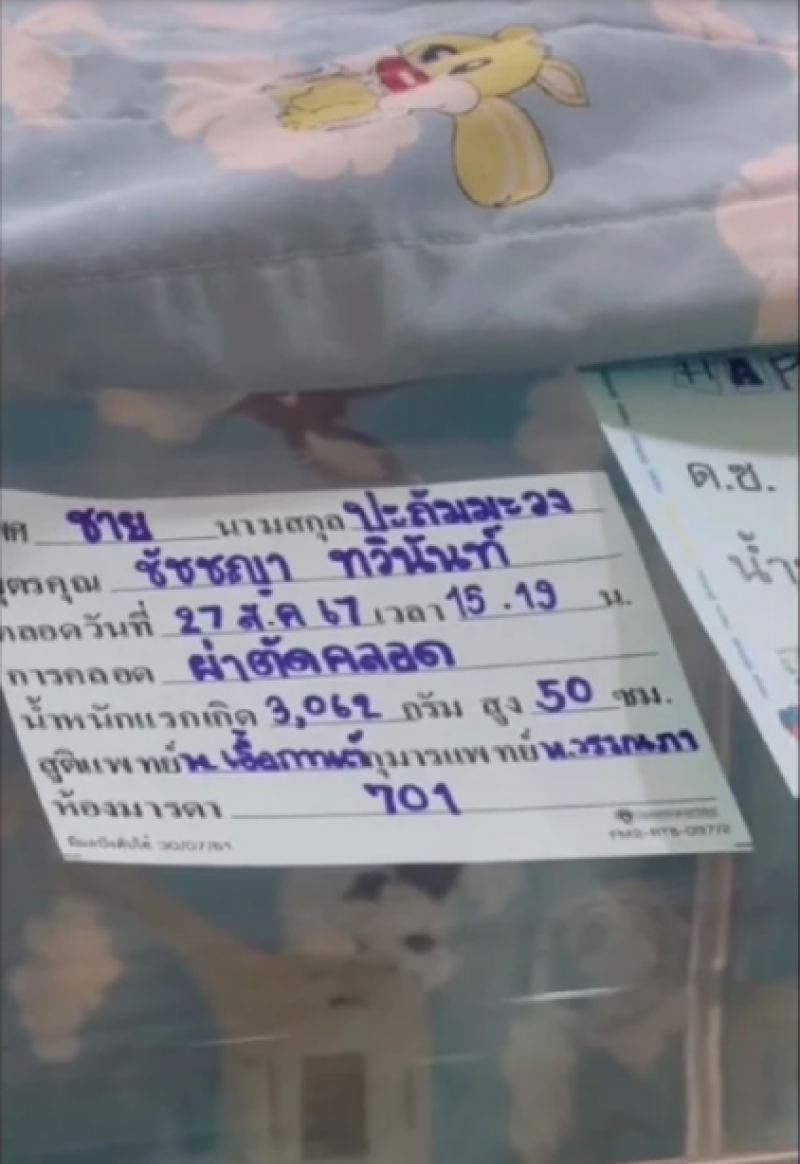 ศ ชาย นามสกุล ปะถัมมะวง
บุตรคุณ ชัชชญา ทวินันท์
คลอดวันที่ 27 ส.ค 67 เวลา 15.19 น.
การคลอด ผ่าตัดคลอด
น้ำหนักแรกเกิด 3,062 กรัม สูง 50 ซม.
สูติแพทย์ กุมารแพทย์ พ.วรรณภา
ห้องมารดา 701
มีผลบังคับใช้ 30/07/61
FM2-RTB-097/2
HAP
ด.ช.